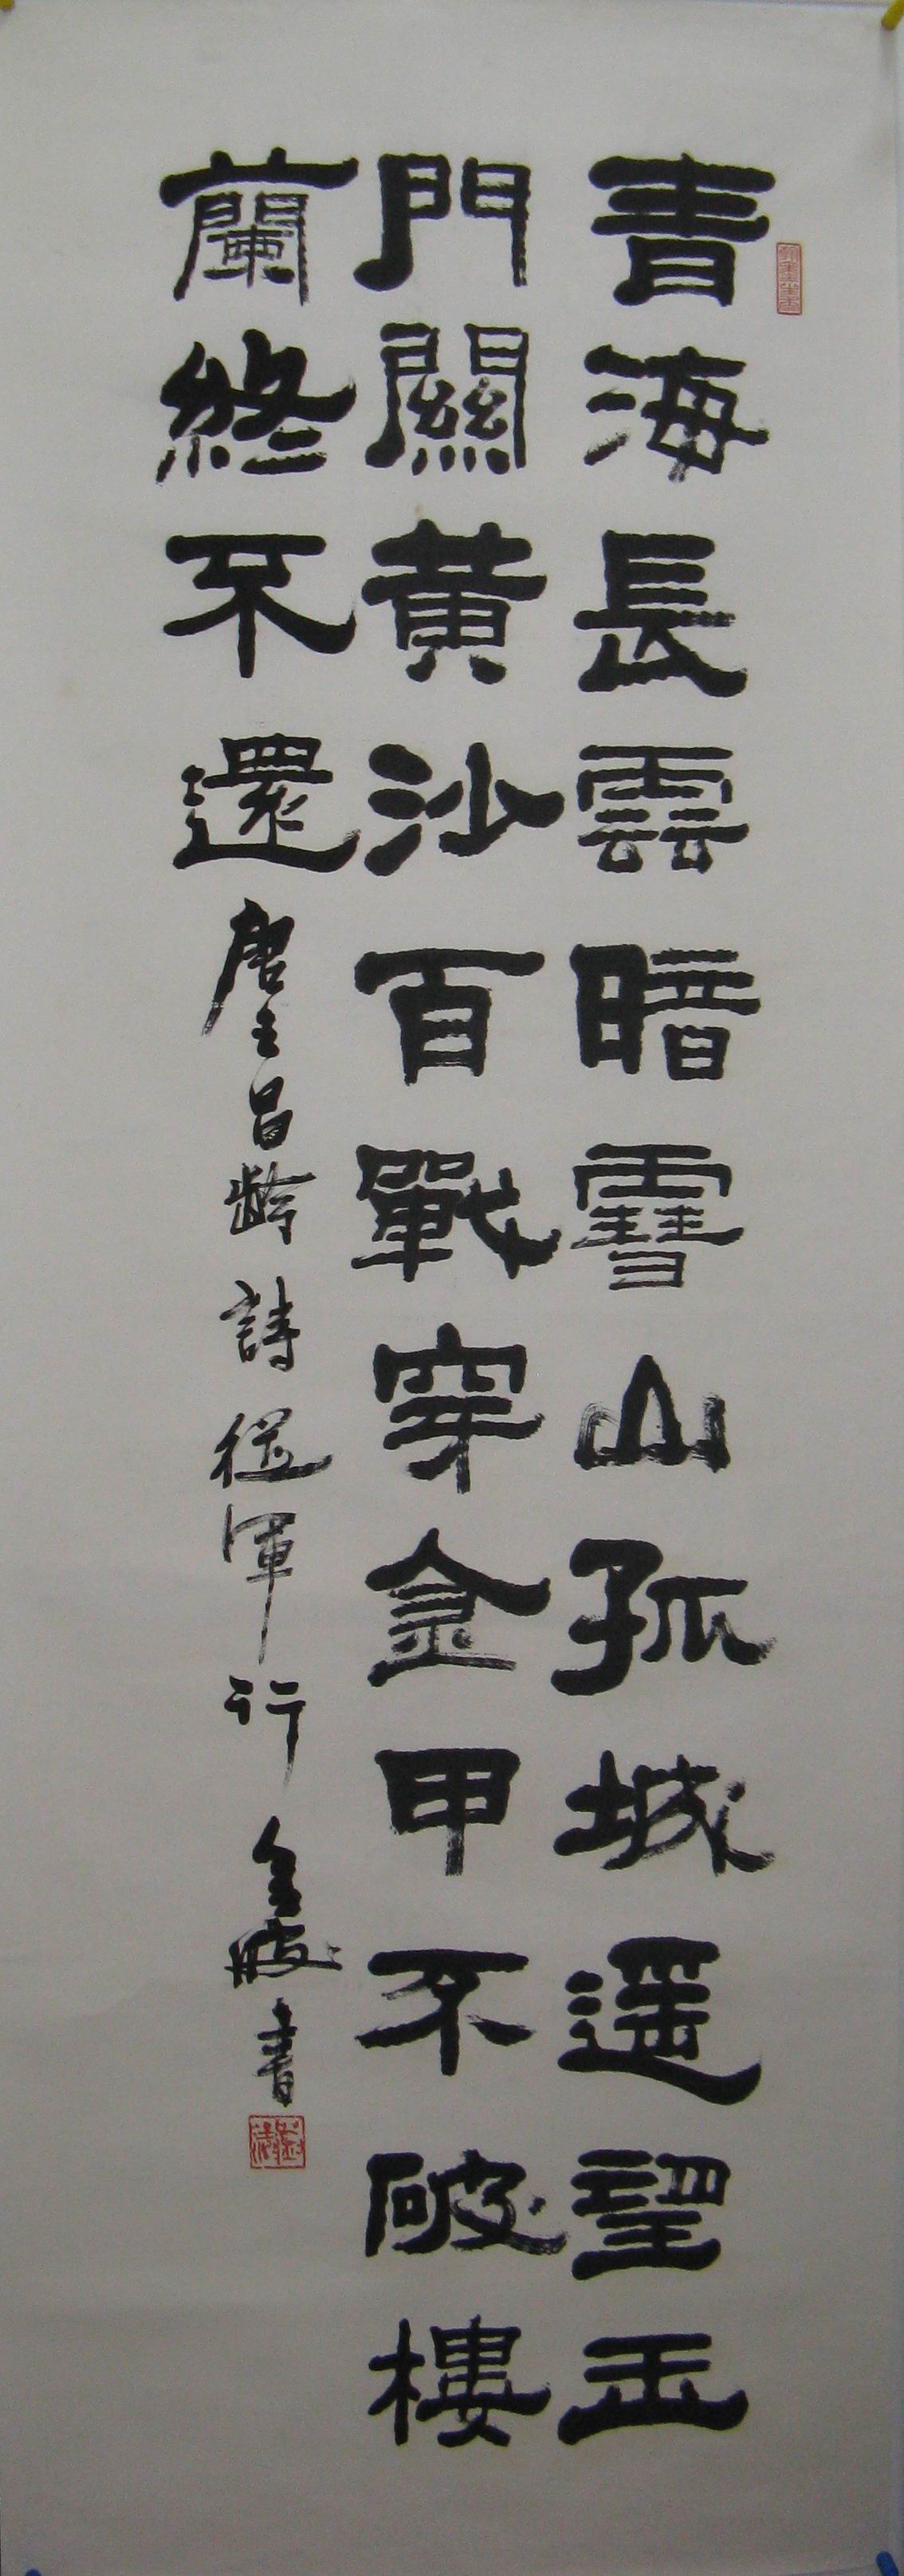 青海長雲暗雪山孤城遥望玉
門關黃沙百戰穿金甲不破樓
蘭終不還唐王昌齡詩從軍行金波書